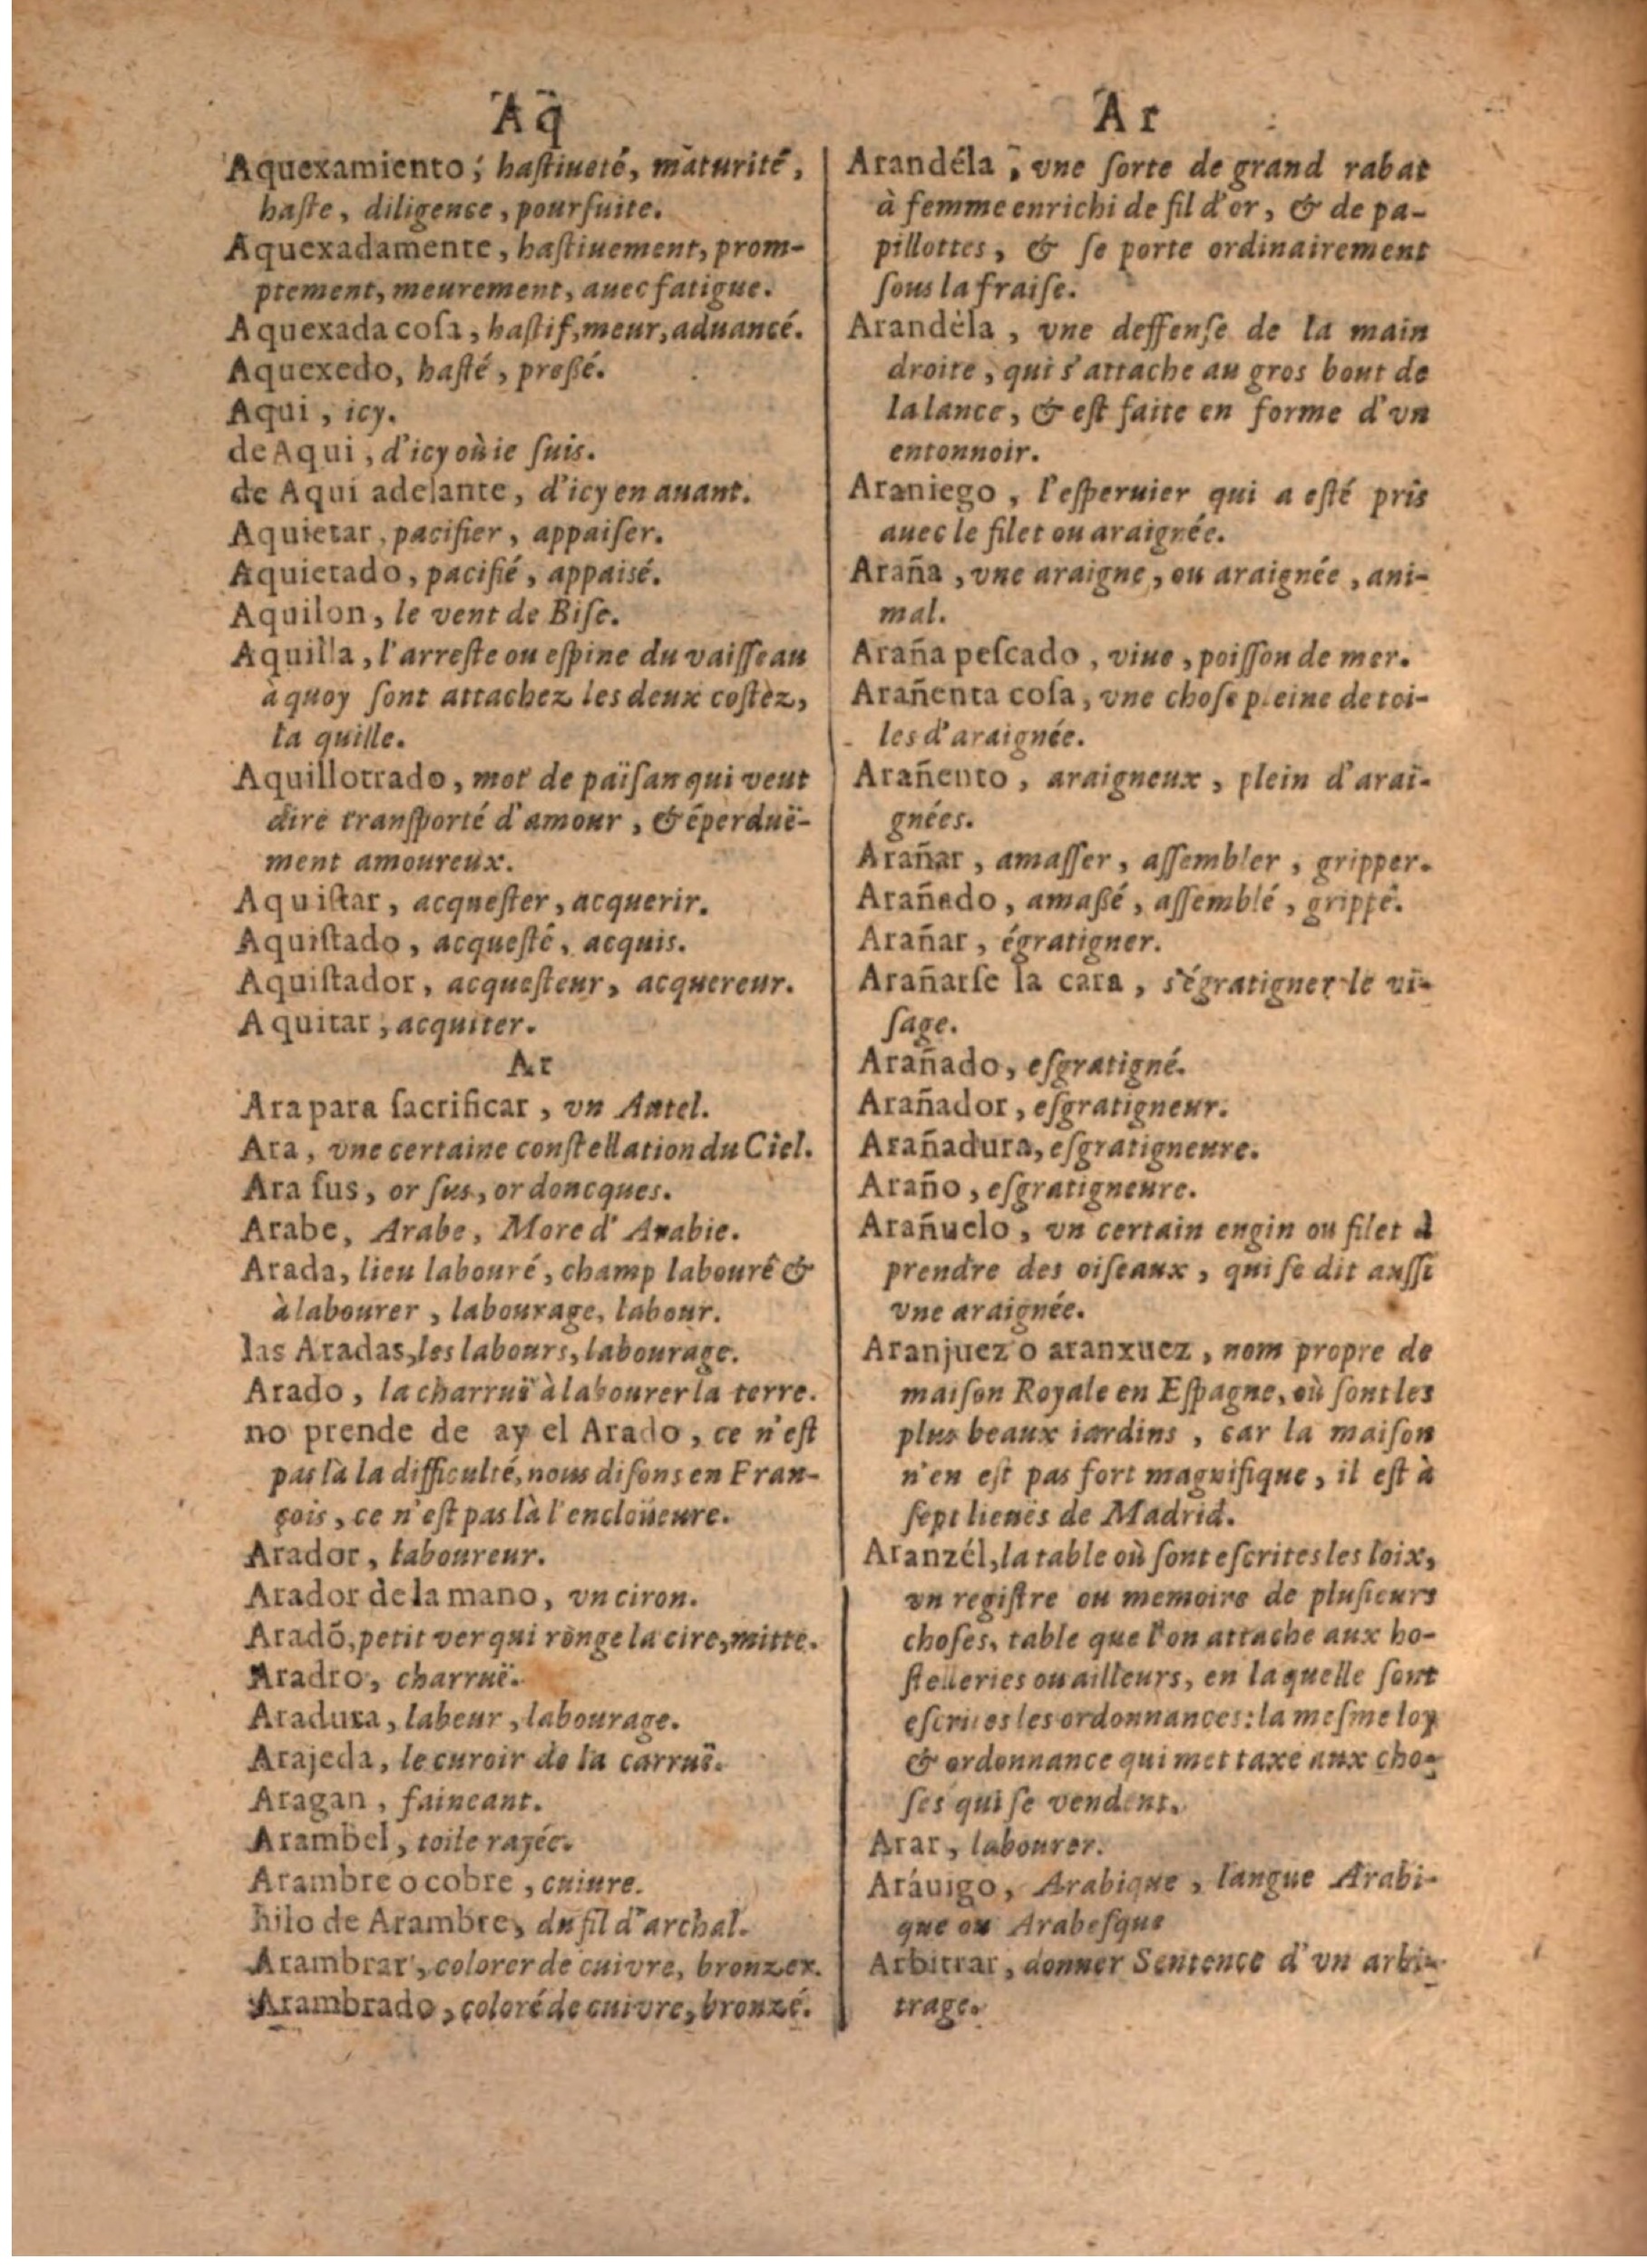 Aq
Aquexamiento, haſtiueté, maturité,
haſte, diligence, pourſuite.
Aquexadamente, haſtiuement, prom-
ptement, meurement, auec fatigue.
Aquexada coſa, haſtif, meur, aduancé.
Aquexedo, haſté, preßé.
Aqui, icy.
de Aqui, d'icy où ie ſuis.
de Aqui adelante, d'icy en auant.
Aquietar, pacifier, appaiſer.
Aquietado, pacifié, appaisé.
Aquilon, le vent de Biſe.
Aquilla, l'arreſte ou eſpine du vaiſſeau
à quoy ſont attachez les deux coſtèz,
la quille.
Aquillotrado, mot de païſan qui veut
dire tranſporté d'amour, & éperduë-
ment amoureux.
Aquiſtar, acqueſter, acquerir.
Aquiſtado, acqueſté, acquis.
Aquiſtador, acqueſteur, acquereur.
Aquitar, acquiter.
Ar
Ara para ſacrificar, vn Autel.
Ara, vne certaine conſtellation du Ciel.
Ara ſus, or ſus, or doncques.
Arabe, Arabe, More d'Arabie.
Arada, lieu labouré, champ labouré &
à labourer, labourage, labour.
las Aradas, les labours, labourage.
Arado, la charruë à labourer la terre.
no prende de ay el Arado, ce n'eſt
pas là la difficulté, nous diſons en Fran-
çois, ce n'eſt pas là l'encloüeure.
Arador, laboureur.
Arador de la mano, vn ciron.
Aradõ, petit ver qui ronge la cire, mitte.
Aradro, charruë.
Aradura, labeur, labourage.
Arajeda, le curoir de la carruë.
Aragan, faineant.
Arambel, toile rayée.
Arambre o cobre, cuiure.
hilo de Arambre, du fil d'archal.
Arambrar, colorer de cuivre, bronzer.
Arambrado, coloré de cuivre, bronzé.
Ar
Arandéla, vne ſorte de grand rabat
à femme enrichi de fil d'or, & de pa-
pillottes, & ſe porte ordinairement
ſous la fraiſe.
Arandèla, vne deffenſe de la main
droite, qui s'attache au gros bout de
la lance, & eſt faite en forme d'vn
entonnoir.
Araniego, l'eſperuier qui a eſté pris
auec le filet ou araignée.
Araña, vne araigne, ou araignée, ani-
mal.
Araña peſcado, viue, poiſſon de mer.
Arañenta coſa, vne choſe pleine de toi-
les d'araignée.
Arañento, araigneux, plein d'arai-
gnées.
Arañar, amaſſer, aſſembler, gripper.
Arañado, amaßé, aſſemblé, grippé.
Arañar, égratigner.
Arañarſe la cara, s'égratigner le vi-
ſage.
Arañado, eſgratigné.
Arañador, eſgratigneur.
Arañadura, eſgratigneure.
Araño, eſgratigneure.
Arañuelo, vn certain engin ou filet à
prendre des oiſeaux, qui ſe dit auſſi
vne araignée.
Aranjuez o aranxuez, nom propre de
maiſon Royale en Eſpagne, où ſont les
plus beaux iardins, car la maiſon
n'en eſt pas fort magnifique, il eſt à
ſept lieuës de Madrid.
Aranzél, la table où ſont eſcrites les loix,
vn regiſtre ou memoire de pluſieurs
choſes, table que l'on attache aux ho-
ſtelleries ou ailleurs, en laquelle ſont
eſcrites les ordonnances: la meſme loy
& ordonnance qui met taxe aux cho-
ſes qui ſe vendent.
Arar, labourer.
Aráuigo, Arabique, langue Arabi-
que ou Arabeſque
Arbitrar, donner Sentence d'vn arbi-
trage.